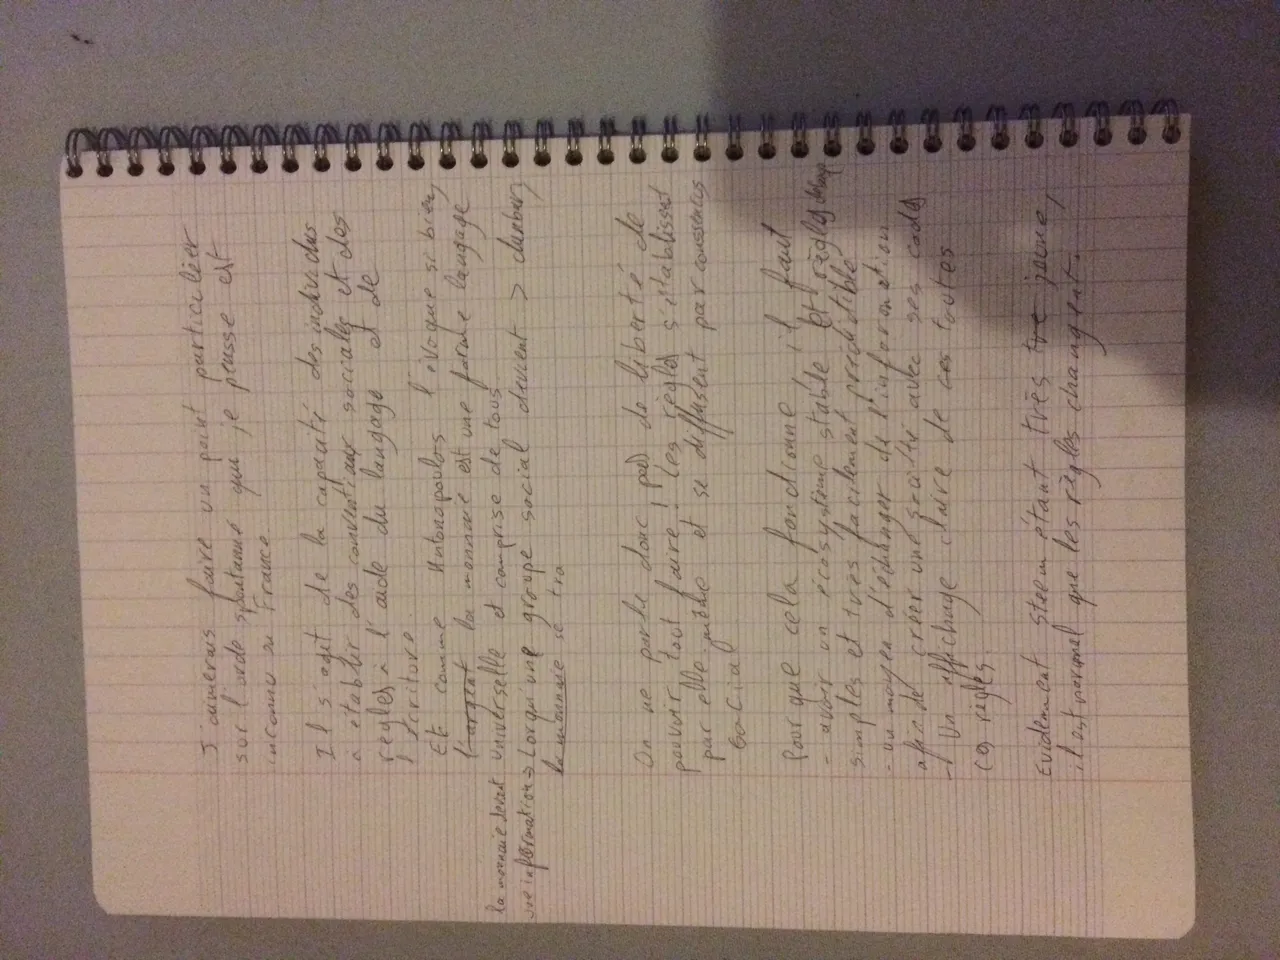 J'aimerais faire un point particulier
sur l'orde spontanné que je pensse est
inconnu en France.
Il s'agit de la capacité des individus
a etablir des conventions sociales et des
regles a l'aide du langage et de
l'écriture.
Et comme Antonopoulos l'évoque si bien,
l'argent la monnaie est une forme langage
universelle et comprise de tous
la monnaie devient
une information > Lorqu'une groupe social devient > dunbar,
la monnaie se tra
On ne parle donc pas de liberté de
pouvoir tout faire! les règles s'établissent
par elle même et se diffusent par consensus
social
Pour que cela fonctionne il faut
- avoir un écosystème stable et règles de base
simples et très facilement prédictible
- un moyen d'échanger de l'information
afin de créer une société avec ses codes
- Un affichage claire de ces toutes
ces règles.
Evidemment steem étant très jeune,
il est normal que les règles changent.